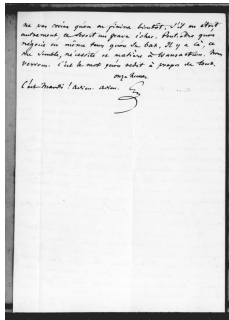 ne pas croire qu'on en finira bientôt, s'il en était
autrement, ce serait un grave échec. Peut-être qu'on
négocie en même temps qu'on se bat. Il y a là, ce
me semble, nécessité et matière à transaction. Nous
verrons. C'est le mot qu'on redit à propos de tout.
onze heures.
C'est Mardi ! Adieu. Adieu.